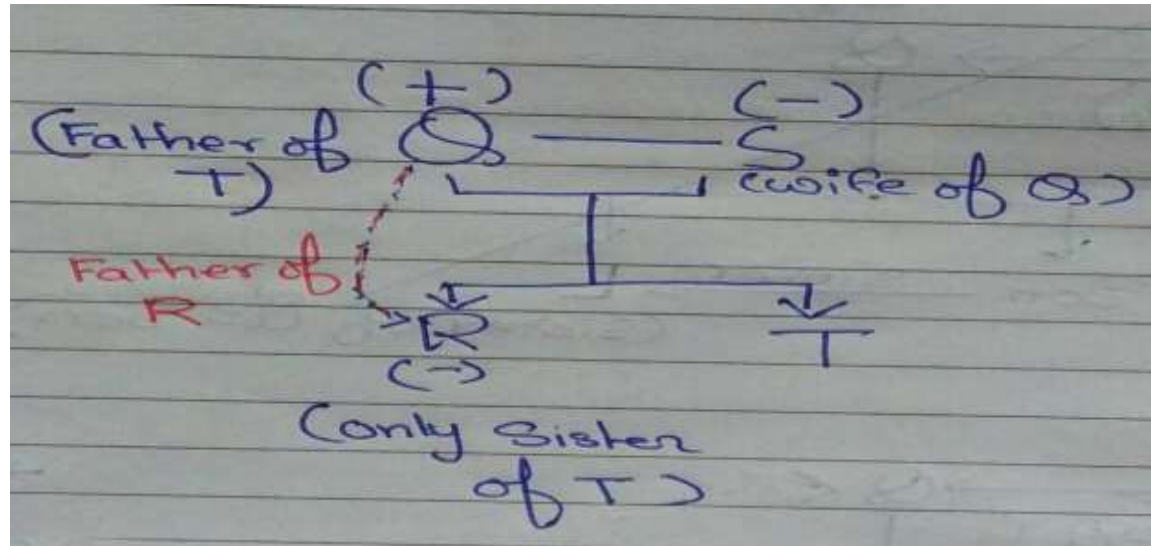 (+) (-)
(Father of Q S
T) (wife of Q)
Father of
R
R T
(-)
(only Sister
of T)